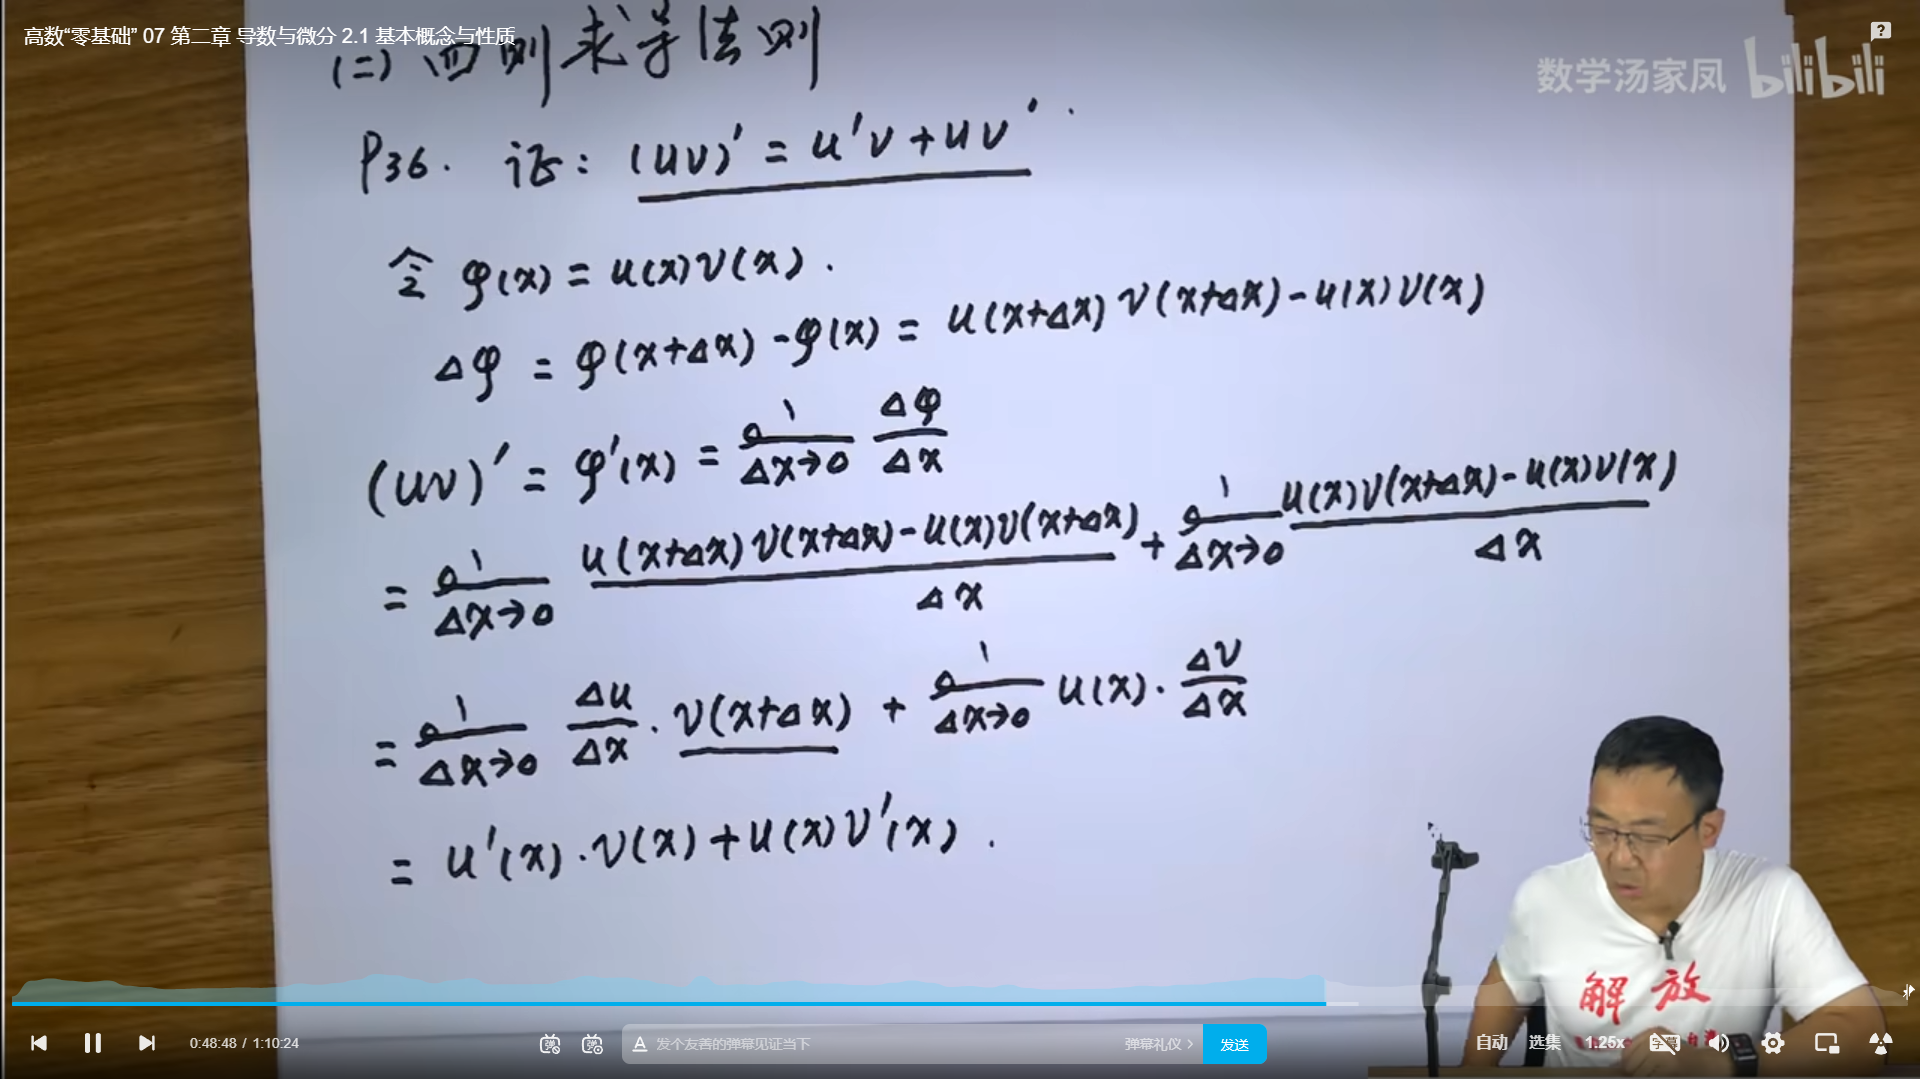 高数“零基础” 07 第二章 导数与微分 2.1 基本概念与性质
数学汤家凤 bilibili
(二) 四则求导法则
P36. 证: (uv)' = u'v + uv'.
令 φ(x) = u(x)v(x).
Δφ = φ(x+Δx) - φ(x) = u(x+Δx)v(x+Δx) - u(x)v(x)
(uv)' = φ'(x) = lim_{Δx→0} Δφ/Δx
= lim_{Δx→0} (u(x+Δx)v(x+Δx) - u(x)v(x+Δx))/Δx + lim_{Δx→0} (u(x)v(x+Δx) - u(x)v(x))/Δx
= lim_{Δx→0} Δu/Δx · v(x+Δx) + lim_{Δx→0} u(x) · Δv/Δx
= u'(x)·v(x) + u(x)v'(x).
解放
0:48:48 / 1:10:24
弹
弹
A 发个友善的弹幕见证当下
弹幕礼仪 >
发送
自动
选集
1.25x
字幕